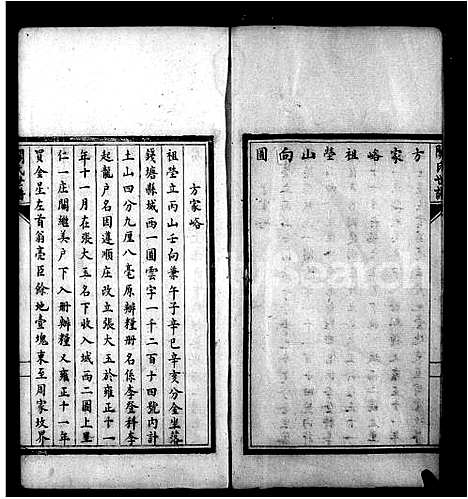 方家峪祖塋山向圖
方家峪
祖塋立丙山壬向兼午子辛巳辛亥分金坐落
錢塘縣城西一圖雲字一千二百十四號內計
土山四分九厘八毫原辦糧册名係李登科李
起龍户名因遵順庄改立張大玉於雍正十一
年十一月在張大玉名下收入城西二圖上里
仁一庄闗繼美户下入册辦糧又雍正十一年
買金呈左首翁亳臣餘地壹塊東至周家坟界